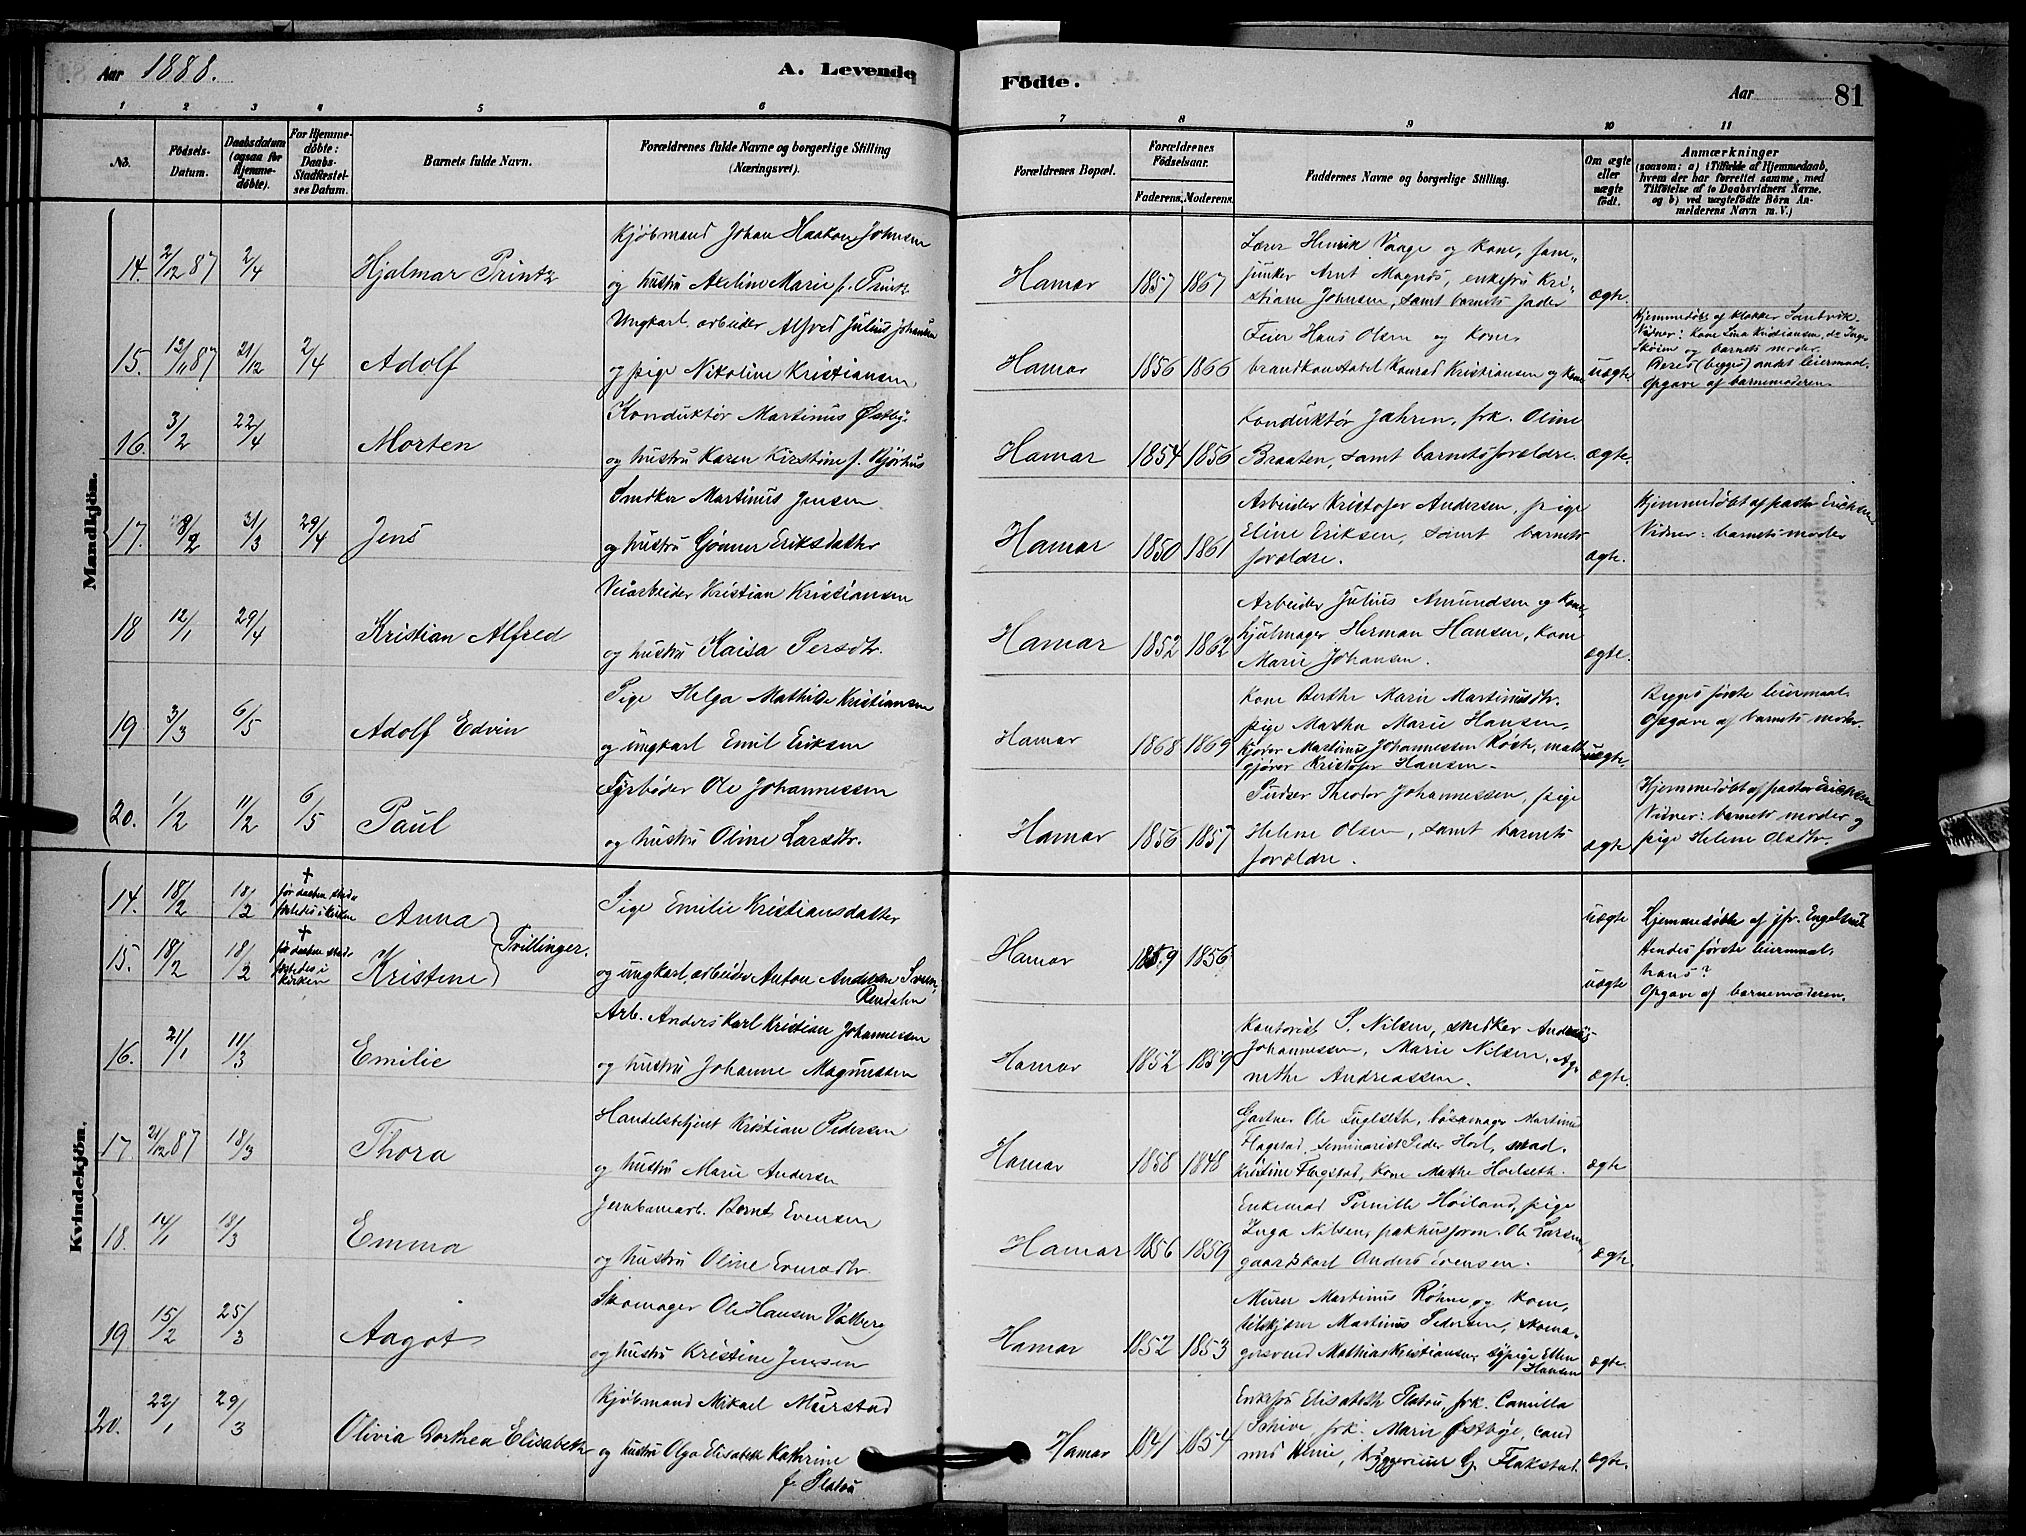 Aar 1888.
A. Levende
Födte.
Aar
81
1 2 3 4 5 6 7 8 9 10 11
No.
Födsels-Datum.
Daabsdatum (ogsaa for Hjemme-döbte).
For Hjemme-döbte: Daabs-Stadfæstelses Datum.
Barnets fulde Navn.
Forældrenes fulde Navne og borgerlige Stilling
(Næringsvei).
Forældrenes Bopæl.
Forældrenes Födselsaar.
Faderens. Moderens.
Faddernes Navne og borgerlige Stilling.
Om ægte eller uægte födt.
Anmærkninger
(saasom: a) i Tilfælde af Hjemmedaab, hvem der har forrettet samme, med Tilföielse af to Daabsvidners Navne. og b) ved uægtefödte Börn Anmelderens Navn m. V.)
Mandkjön.
14. 2/12 87 2/4 Hjalmar Printz
Kjøbmand Johan Haakon Johnsen
og hustru Axeline Marie f. Printz
Hamar 1857 1867
Lærer Henrik Vaage og kone, fanejunker Arnt Magnus, enkefru Kristiane Johnsen, samt barnets fader
ægte.
15. 12/11 87 21/12 2/4 Adolf
Ungkarl. arbeider Alfred Julius Johansen
og pige Nikoline Kristiansen
Hamar 1856 1866
Feier Hans Olsen og kone
brandkonstabel Konrad Kristiansen og kone
uægte
Hjemmedøbt af klokker Sandvik.
Vidner: kone Lina Kristiansen, do Inga
Skøien og barnets moder.
Deres (begges) andet leiermaal.
Opgave af barnemoderen.
16. 3/2 22/4 Morten
Konduktør Martinus Østby
og hustru Karen Kirstine f. Bjørhus
Hamar 1854 1856
Konduktør Jahren, frk. Oline
Braaten, samt barnets forældre.
ægte.
17. 8/2 31/3 29/4 Jens
Snedker Martinus Jensen
og hustru Gunner Eriksdatter
Hamar 1850 1861
Arbeider Kristofer Andersen, pige
Eline Eriksen, samt barnets
forældre.
ægte.
Hjemmedøbt af pastor Erichsen
Vidner: barnets moder
18 12/1 29/4 Kristian Alfred
Veiarbeider Kristian Kristiansen
og hustru Kaisa Persdtr.
Hamar 1852 1862
Arbeider Julius Amundsen og kone,
hjulmager Herman Hansen, kone
Marie Johansen.
ægte.
19 3/3 6/5 Adolf Edvin
Pige Helga Mathilde Kristiansen
og ungkarl Emil Eriksen
Hamar 1868 1869
Kone Berthe Marie Martinusdtr.
pige Martha Marie Hansen,
kjører Martinus Johannessen Røste,
gjører Kristofer Hansen.
uægte.
Begges første leiermaal.
Opgave af barnets moder.
20. 1/2 11/2 6/5 Paul
Fyrbøder Ole Johannessen
og hustru Oline Larsdtr.
Hamar 1856 1857
Pudser Theodor Johannessen, pige
Helene Olsen, samt barnets
forældre.
ægte
Hjemmedøbt af pastor Erichsen
Vidner: barnets moder og
pige Helene Olsdtr.
Kvindekjön.
14. 18/2 18/2 † før daaben stadfæstedes i kirken Anna
15. 18/2 18/2 † før daaben stadfæstedes i kirken Kristine
Tvillinger.
Pige Emilie Kristiansdatter
og ungkarl, arbeider Anton Andersen
Rendalen
Hamar 1859 1856
uægte
uægte
Hjemmedøbte af jfr. Engelsrud
Hendes første leiermaal
hans?
Opgave af barnemoderen.
16. 21/1 11/3 Emilie
Arb. Anders Karl Kristian Johannessen
og hustru Johanne Magnussen
Hamar 1852 1859
Kontorist P. Nilsen, snedker Andreas
Johannessen, Marie Nilsen, Agnethe Andreassen.
ægte.
17. 21/12 87 18/3 Thora
Handelsbetjent Kristian Pedersen
og hustru Marie Andersen
Hamar 1858 1848
Gartner Ole Fuglseth, bøssemager Martinus
Flagstad, seminarist Peder Hoel, mad.
Kristine Flagstad, kone Mathea Hoelseth.
ægte
18. 14/1 18/3 Emma
Jernbanearb. Bernt Evensen
og hustru Oline Evensdtr.
Hamar 1856 1859
Enkemad Pernille Høiland, pige
Inga Nilsen, pakhusform. Ole Larsen,
gaardskarl Anders Evensen.
ægte.
19 15/2 25/3 Aagot
Skomager Ole Hansen Valberg
og hustru Kristine Jensen
Hamar 1852 1853
Murer Martinus Røhne og kone,
tilskjærer Martinus Pedersen, skomagersvend Mathias Kristiansen, sypige Ellen
Hansen
ægte.
20. 22/1 29/3 Olivia Dorthea Elisabeth
Kjøbmand Mikael Mürstad
og hustru Olga Elisabeth Kathrine
f. Platou
Hamar 1841 1854
Enkefru Elisabeth Platou, frk. Camilla
Schive, frk. Marie Østbye, cand
med Henie, bryggerieier G. Flakstad.
ægte.